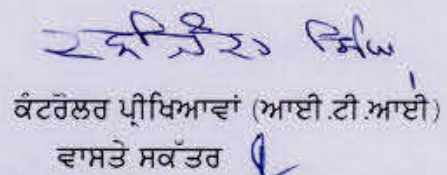 ਕੰਟਰੋਲਰ ਪ੍ਰੀਖਿਆਵਾਂ (ਆਈ.ਟੀ.ਆਈ)
ਵਾਸਤੇ ਸਕੱਤਰ